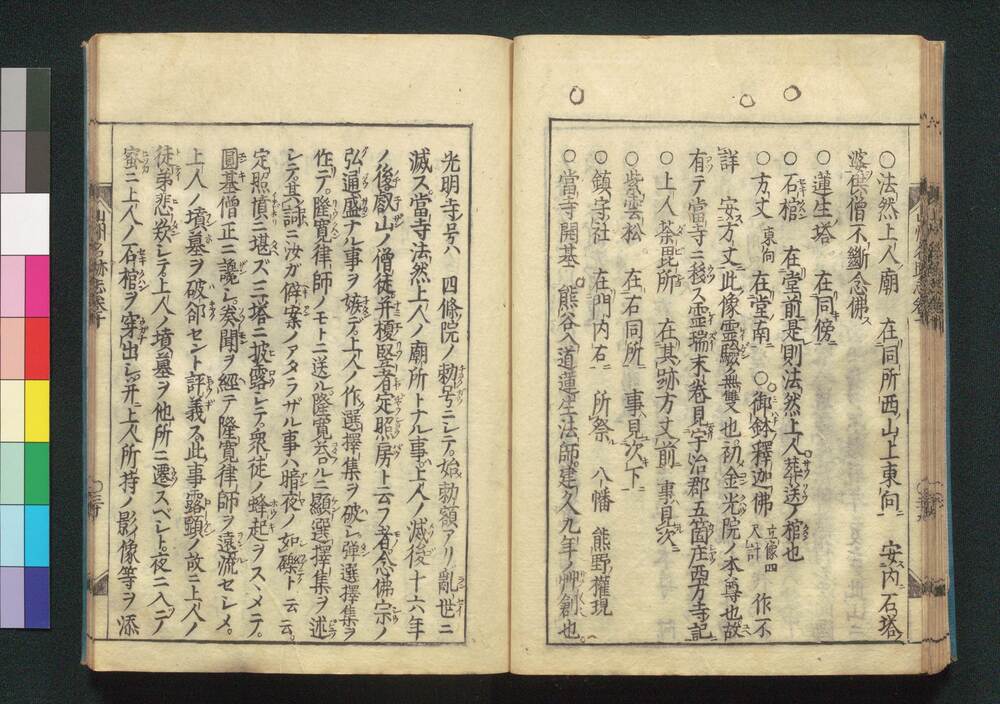 ○法然上人廟　在同所西山上東向　安内石塔
婆供僧不斷念佛
○蓮生塔　在同傍
○石棺　在堂前是則法然上人葬送ノ棺也
○方丈 東向 在堂南　○御鉢釋迦佛 立像四尺計 作不
詳　安方丈此像靈驗無雙也初金光院ノ本尊也故
有テ當寺ニ移ス靈瑞末巻見宇治郡五箇庄西方寺記
○上人荼毘所　在其跡方丈前　事見次
○紫雲松　在右同所　事見次下
○鎮守社　在門内右　所祭　八幡　熊野權現
○當寺開基　熊谷入道蓮生法師建久九年ノ艸創也
光明寺号ハ　四條院ノ勅号ニシテ始勅額アリ亂世ニ
滅ス當寺法然上人ノ廟所トナル事上人ノ滅後十六年
ノ後叡山ノ僧徒并榎竪者定照房ト云フ者念佛宗ノ
弘通盛ナル事ヲ嫉デ上人ノ作選擇集ヲ破シ彈選擇集ヲ
作テ隆寛律師ノモトニ送ル隆寛亦ル顯選擇集ヲ述
シテ其詞ニ汝ガ僻案ノアタラザル事ハ暗夜ノ如礫ト云云
定照憤ニ堪ズ三塔ニ披露シテ衆徒ノ蜂起ヲスヽメテ
圓基僧正ニ讒シ奏聞ヲ經テ隆寛律師ヲ遠流セシメ
上人ノ墳墓ヲ破却セント評義ス此事露顯ノ故ニ上人ノ
徒弟悲歎シテ上人ノ墳墓ヲ他所ニ遷スベシト夜ニ入テ
蜜ニ上人ノ石棺ヲ穿出シ并上人所持ノ影像等ヲ添